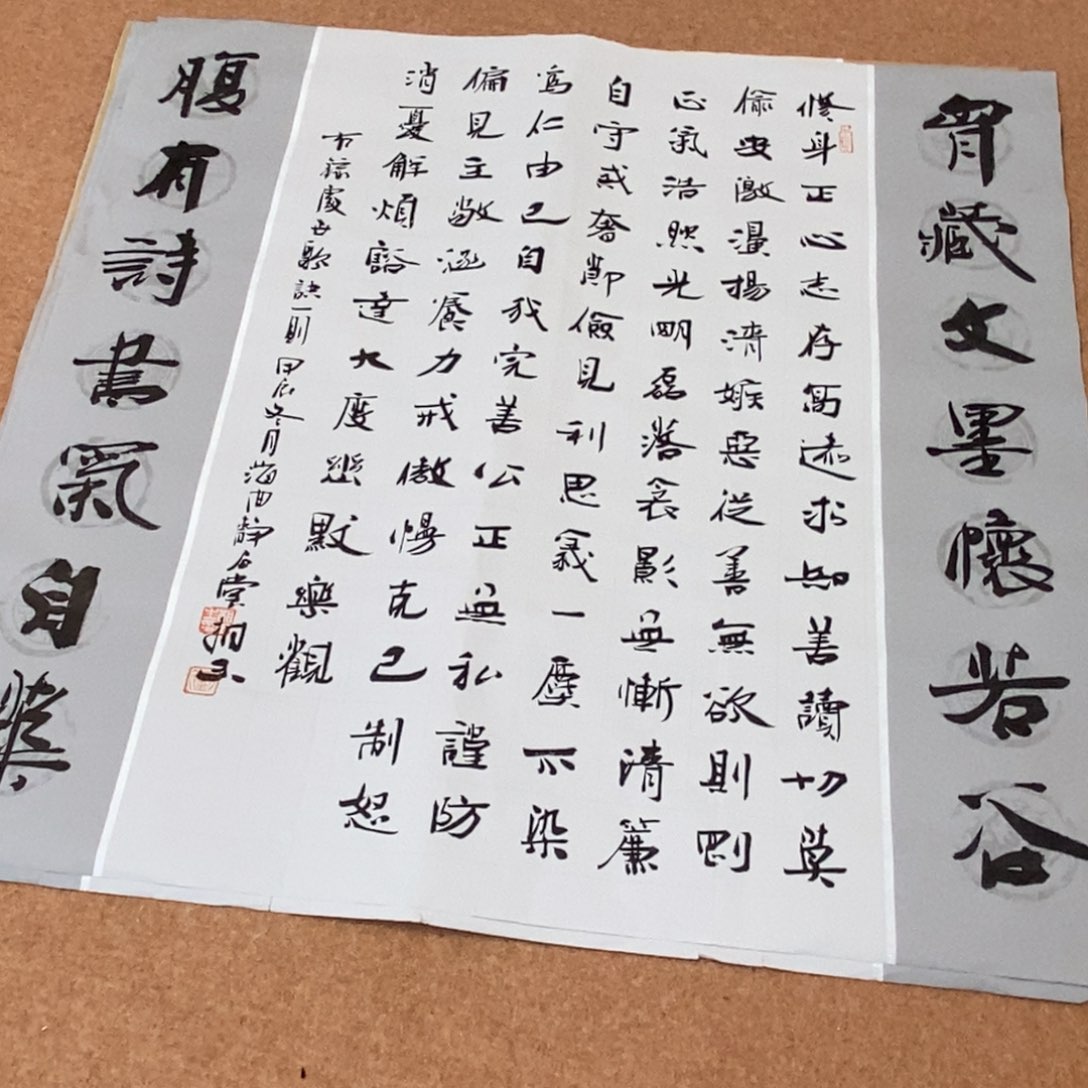 胷藏文墨懷若谷
修身正心志存高遠求知善讀切莫
偷安激濁揚清嫉惡從善無欲則剛
正氣浩然光明磊落衾影無慚清廉
自守戒奢節儉見利思義一塵不染
為仁由己自我完善公正無私謹防
偏見主敬涵養力戒傲慢克己制怒
消憂解煩豁達大度幽默樂觀
右錄處世歌訣一則甲辰冬月海西靜石堂
腹有詩書氣自華